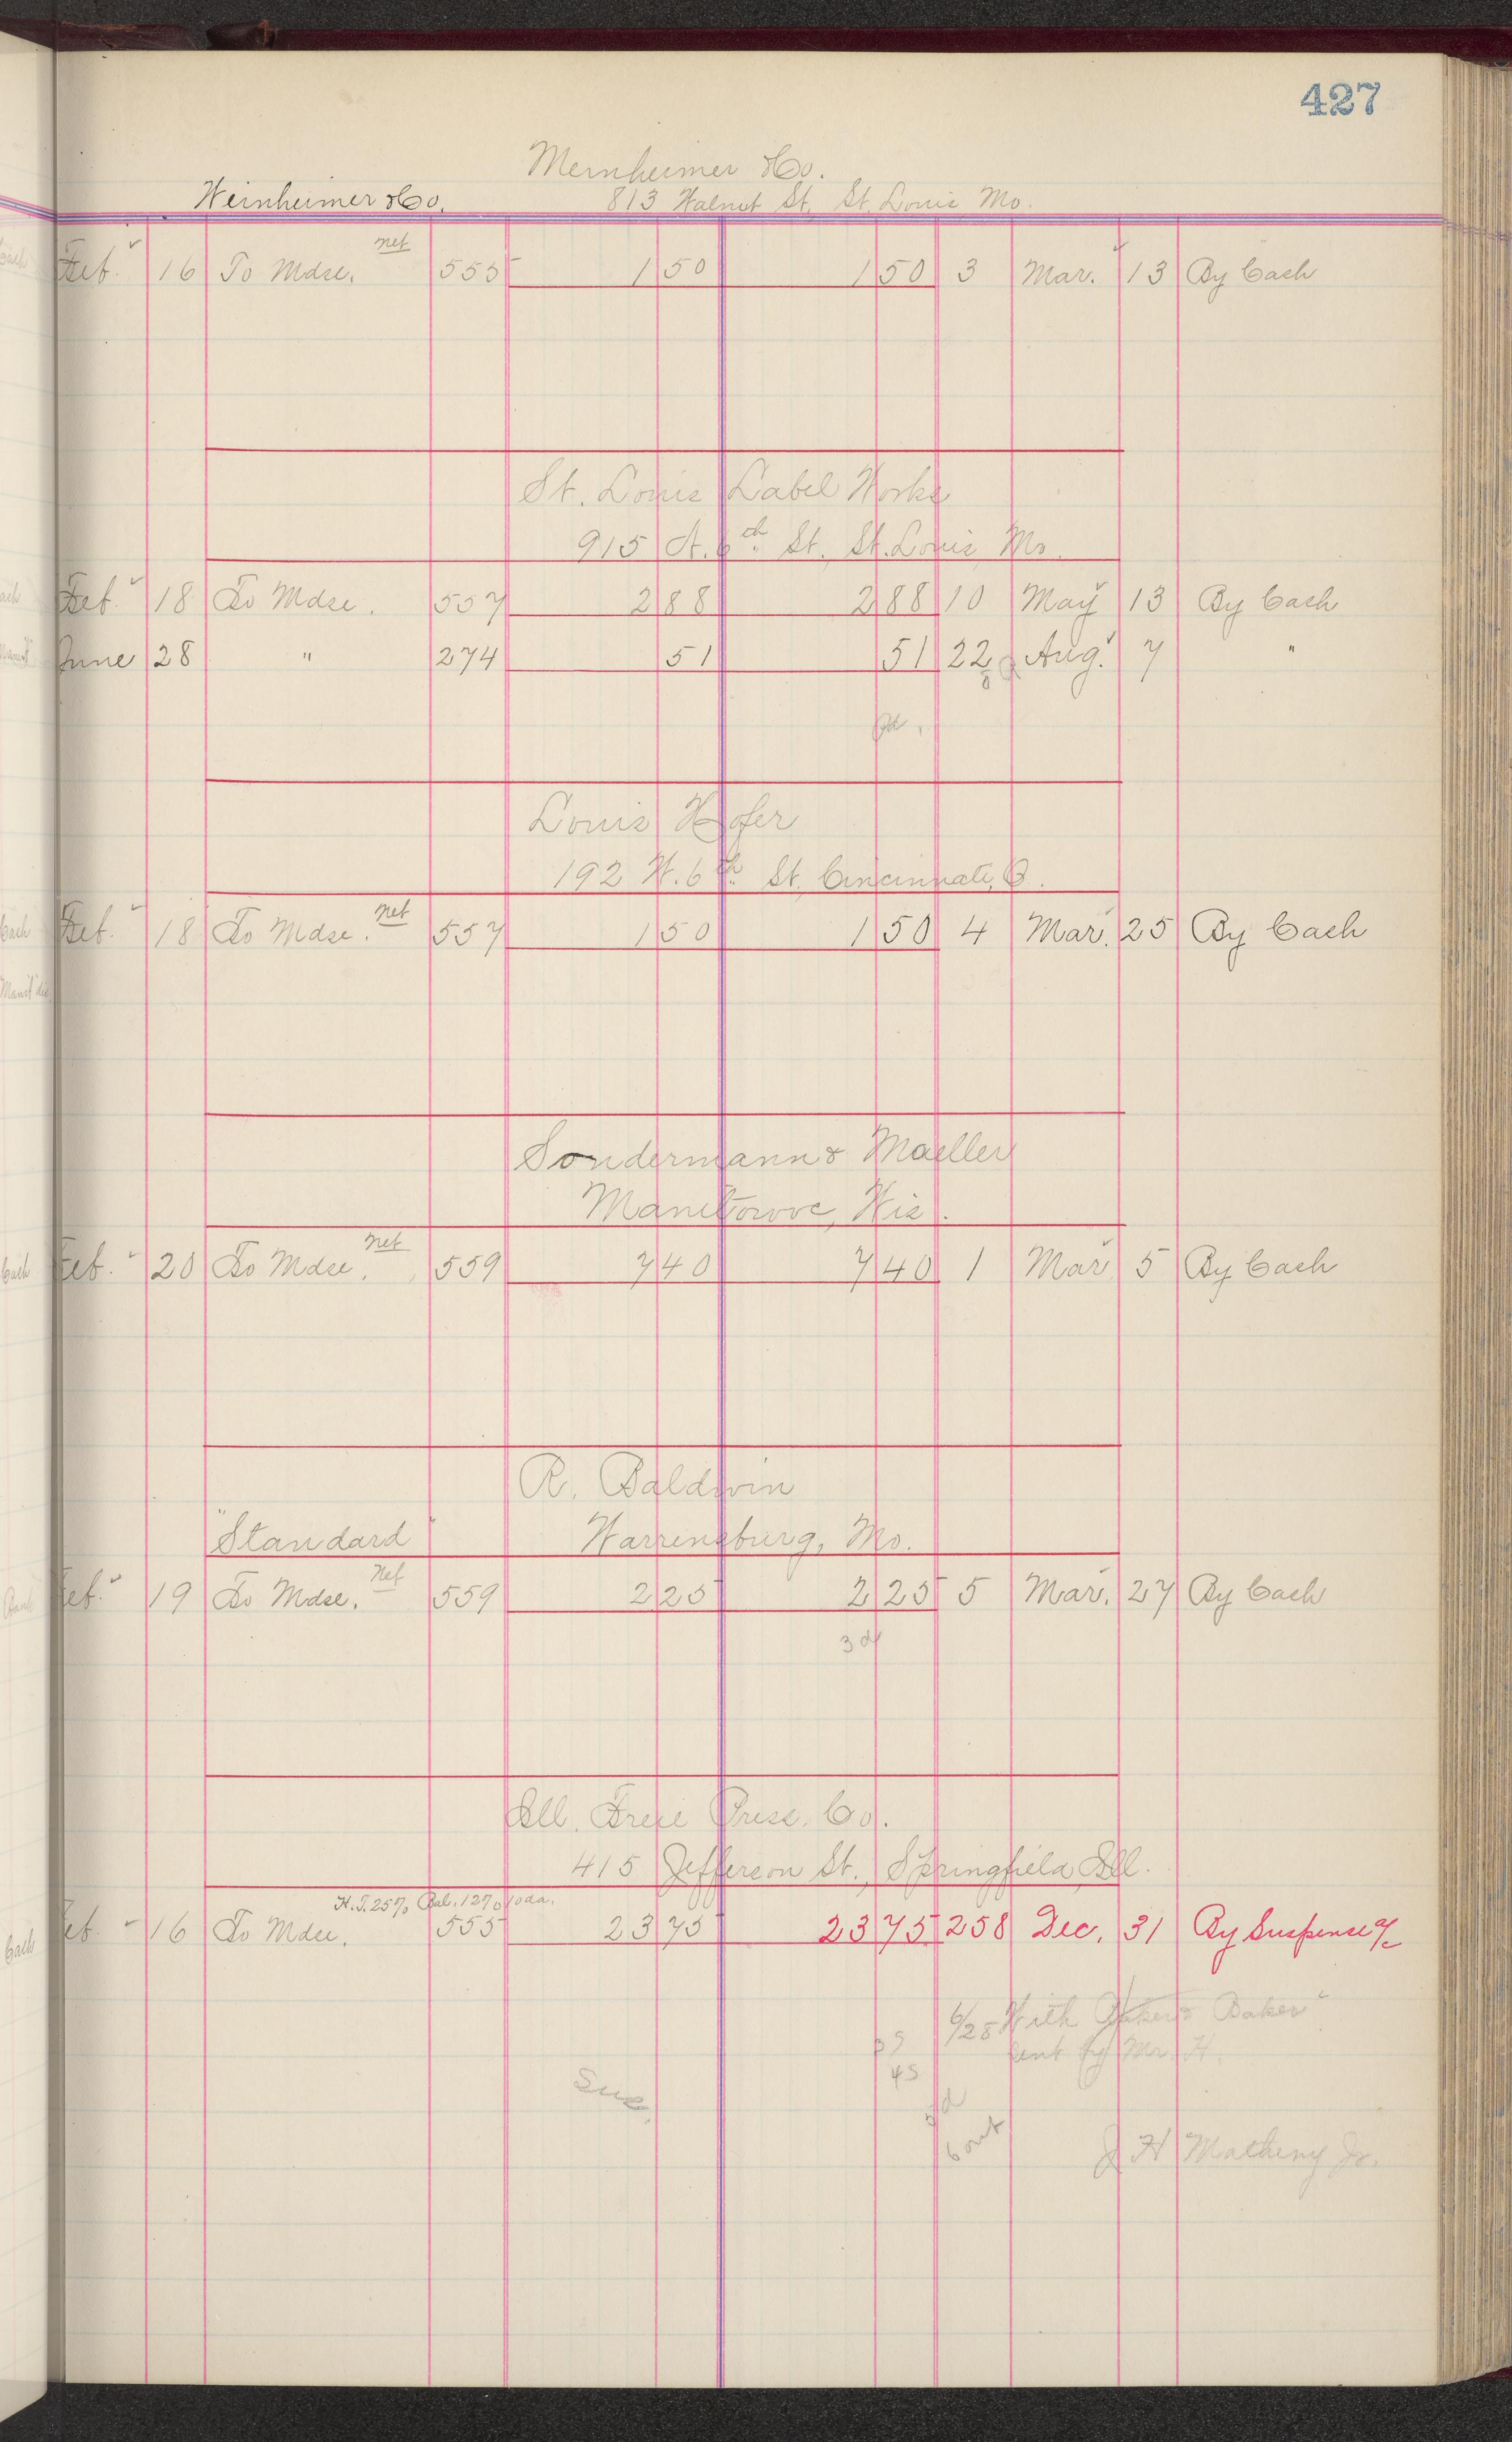 427
Mernheimer & Co.
Weinheimer & Co. 813 Walnut St, St. Louis Mo.
Feb. 16 To Mdse. net 555 1 50 1 50 3 Mar. 13 By Cash
St. Louis Label Works
915 N. 6th St. St. Louis, Mo.
Feb. 18 To Mdse. 557 2 88 2 88 10 May 13 By Cash
June 28 " 274 51 51 22 Aug. 7 "
Pd.
Louis Hofer
192 W. 6th St, Cincinnati, O.
Feb. 18 To Mdse. net 557 1 50 1 50 4 Mar. 25 By Cash
Sondermann & Maeller
Manitowoc, Wis.
Feb. 20 To Mdse. net 559 7 40 7 40 1 Mar 5 By Cash
R. Baldwin
"Standard" Warrensburg, Mo.
Feb. 19 To Mdse. Net 559 2 25 2 25 5 Mar. 27 By Cash
3d
Ill. Freie Presse. Co.
415 Jefferson St., Springfield, Ill.
H.T. 25% Bal. 12% 10 da.
Feb. 16 To Mdse. 555 23 75 23 75 258 Dec. 31 By Suspense a/c
6/25 With Baker & Baker
sent by Mr. H.
45
Sus.
J H Matheny Jr.